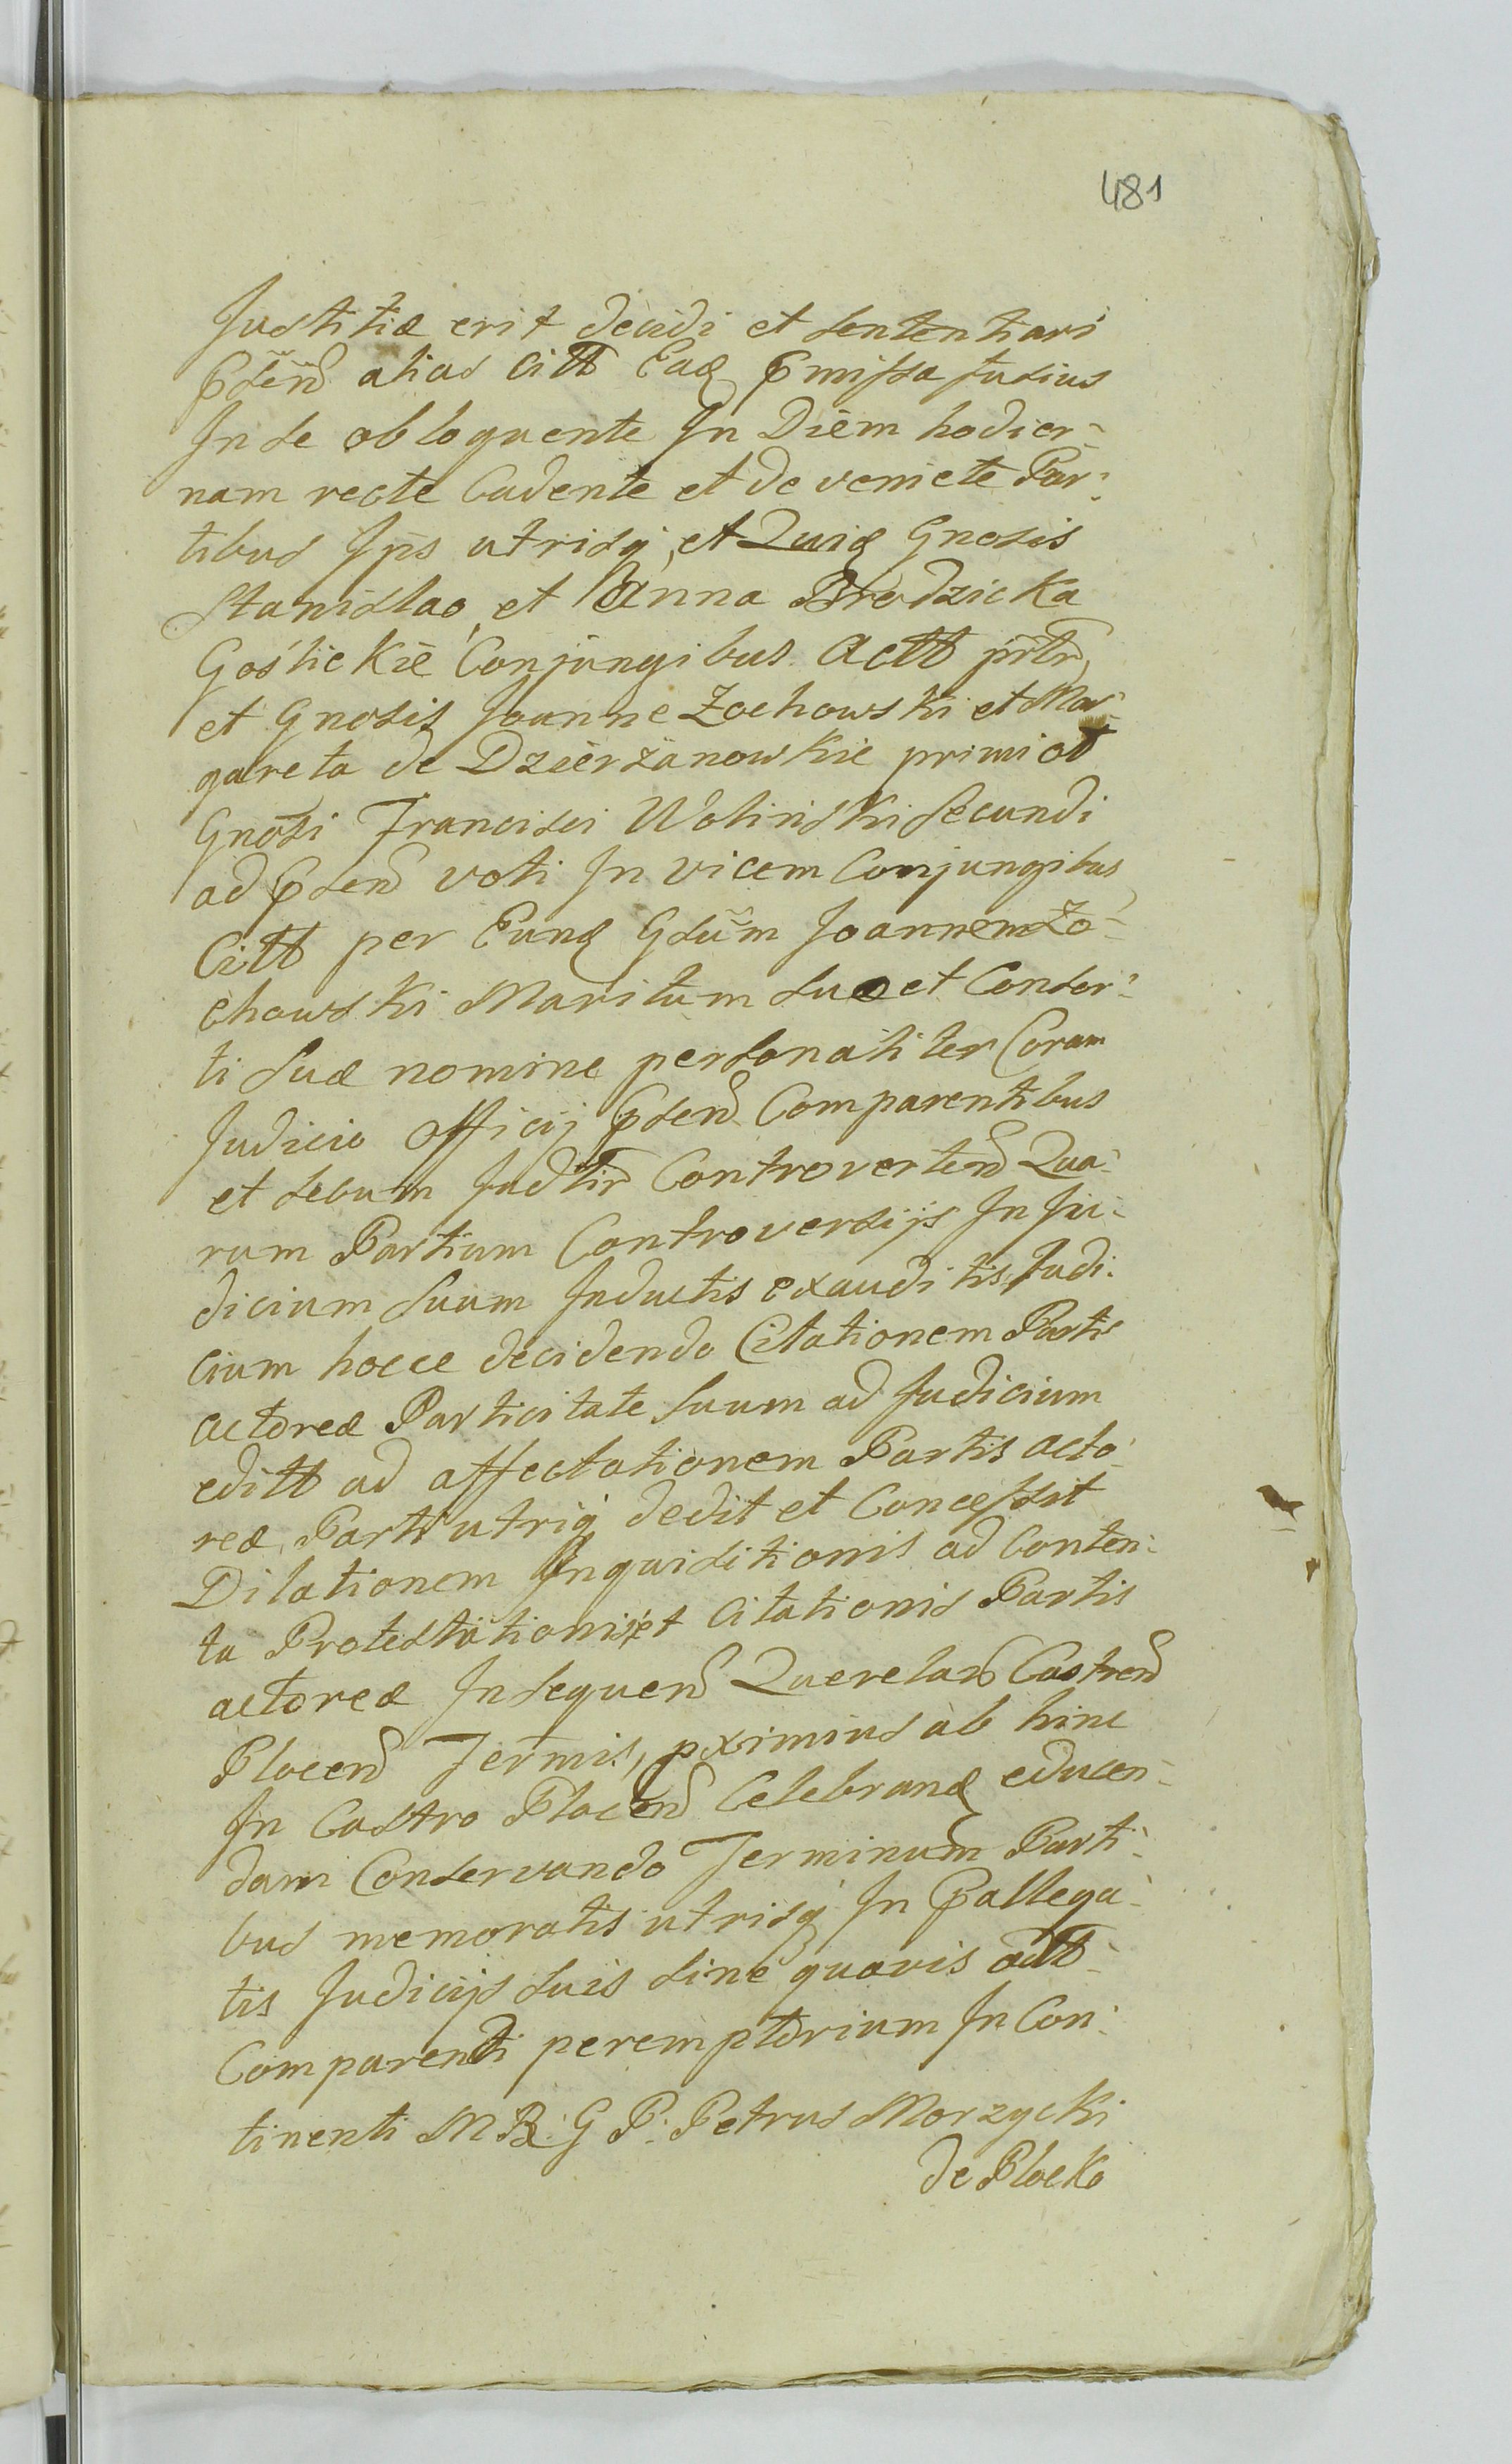 481
Justitiæ erit decidi et sententiari
pñsen̄ alias Citt Eaq pmissa fusius
In se obloquente In Diem hodier-
nam recte Cadente et deveniete Par-
tibus Ip̄s utrisq, et Quiq Gnosis
Stanislao et Anna Brodzicka
Goślickie Conjungibus Actt
et Gnosis Joanne Żochowski et Mar-
gareta de Dzierżanowskie primi ot
Gnosi Francisci Wolinski Secundi
ad psen voti In vicem Conjungibus
Citt per Eunq Gsum Joannem Żo-
chowski Maritum suo et Consor-
ti Suæ nomine personaliter Coram
Judicio Officij psen Comparentibus
et secum Judtir Controverten Qua-
rum Partium Controversijs In Ju-
dicium Suum Inductis exauditis, Judi-
cium hocce decidendo Citationem Partis
actoreæ Particitate Suum ad Judicium
editt ad affectationem Partis acto-
reæ, Parti utriq dedit et Concessit
Dilationem Inquisitionis ad Conten-
ta Protestationis et Citationis Partis
actoreæ Insequen Querelar Castren
Plocen Termis, pximius ab hinc
In Castro Plocen Celebranq educen-
dam Conservando Terminum Parti-
bus memoratis utrisq In pallega-
tis Judicijs suis sine quavis adtt
Comparendi peremptorium In Con-
tinenti M R: G P: Petrus Morzycki
de Plocko